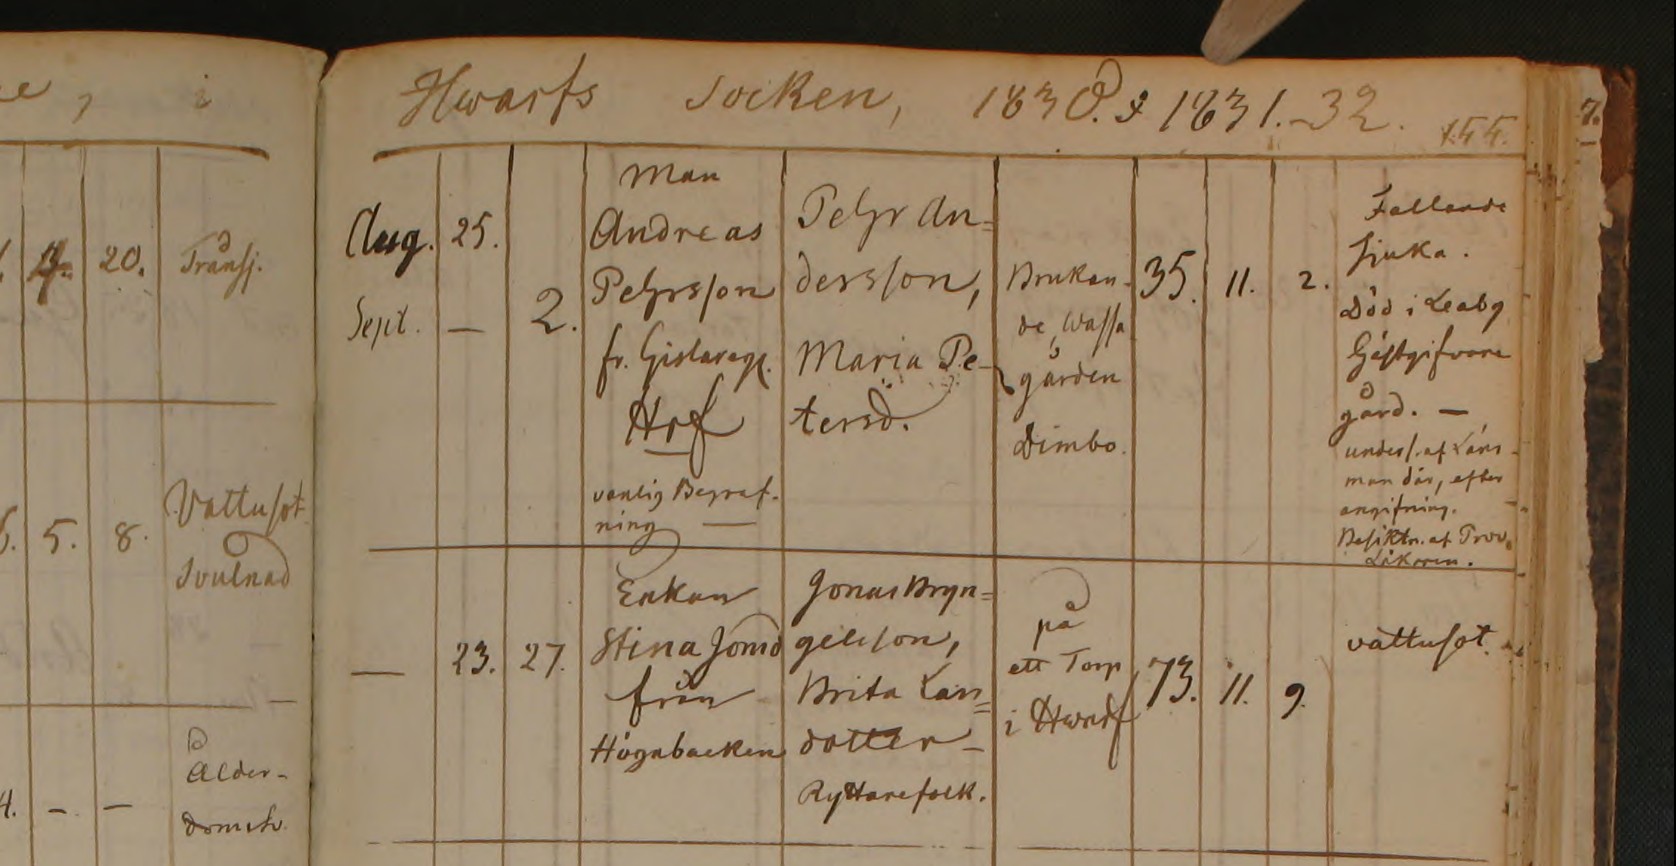 i
Hwarfs Socken, 1830. & 1831.-32.
155.
7.
20. Trånsj.
5. 8. Vattusot
Svulnad
4. - - Ålder-
domsv.
Aug. 25.
Sept. — 2.
Man
Andreas
Pehrsson
fr. Gislareg.
Hof
vanlig Begraf-
ning —
Pehr An=
dersson,
Maria Pe-
tersd.
Brukan-
de, Wassa
gården
Dimbo.
35. 11. 2.
Fallande
sjuka.
Död i Leaby
Gästgifvare
gård. —
unders. af Läns-
man där, efter
angifning.
Besiktn. af Prov.
Läkaren.
— 23. 27.
Enkan
Stina Jonsd
från
Högnbacken
Jonas Bryn=
gelsson,
Brita Lars=
dotter –
Ryttarefolk.
på
ett Torp
i Hwarf
73. 11. 9.
vattusot.